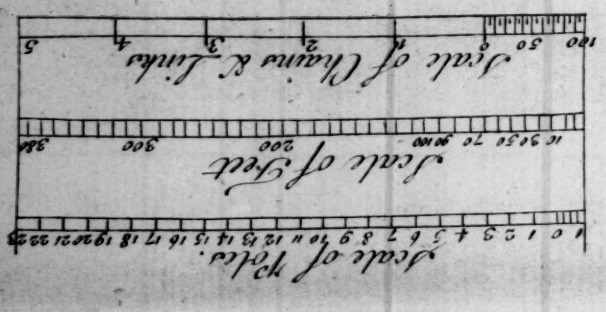 Scale of Poles.
1 0 1 2 3 4 5 6 7 8 9 10 11 12 13 14 15 16 17 18 19 20 21 22 23
Scale of Feet
10 30 50 70 90 100 200 300 380
Scale of Chains & Links
100 50 0 1 2 3 4 5